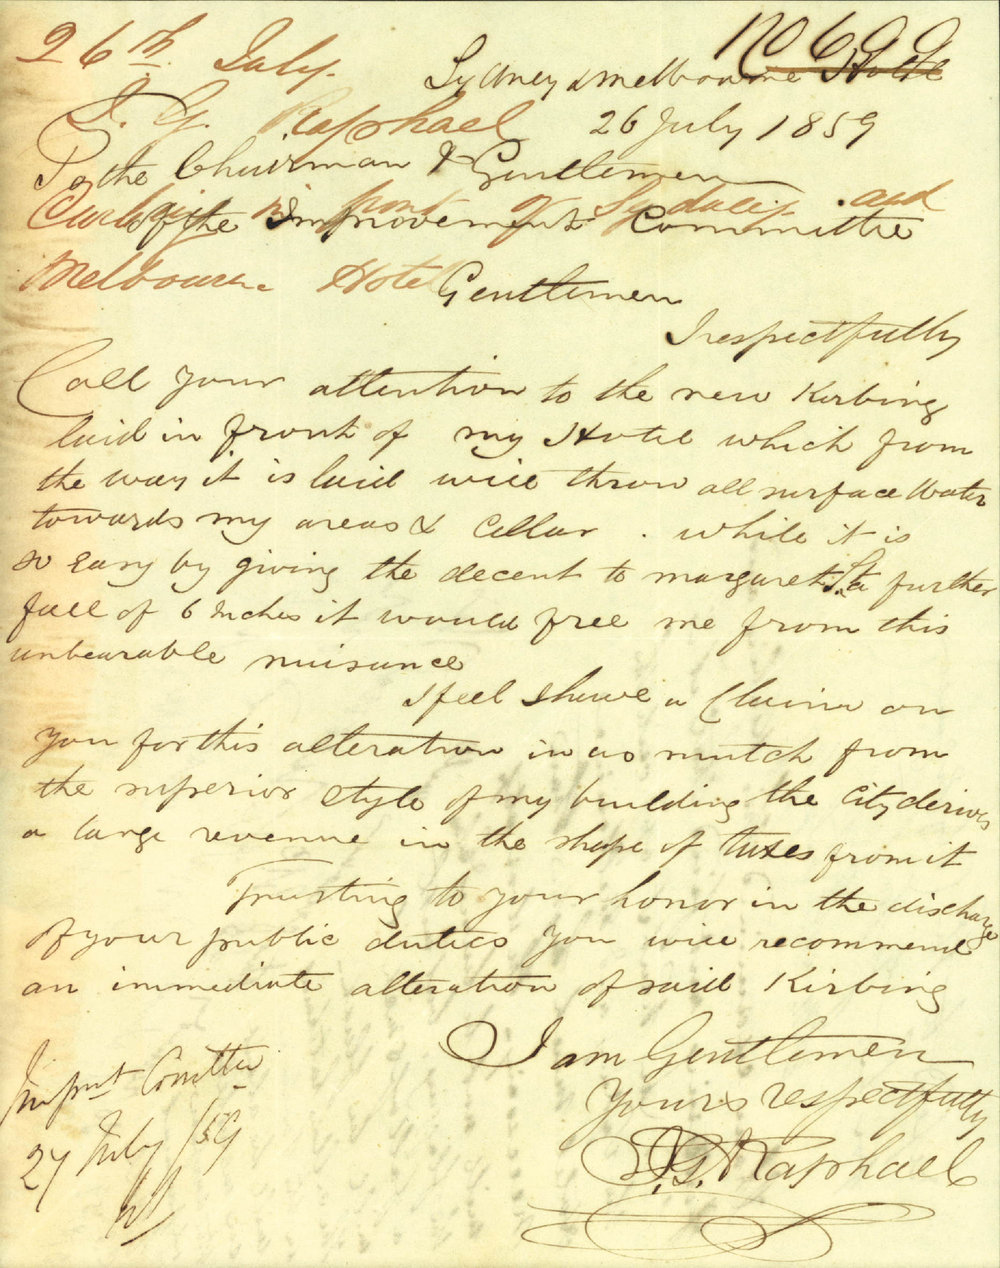 No 699
26th July.
Sydney & Melbourne Hotel
J. G. Raphael
26 July 1859
To the Chairman & Gentlemen
Curbing in front of Sydney and
of the Improvement Committee
Melbourne Hotel
Gentlemen
I respectfully
Call your attention to the new Kirbing
laid in front of my Hotel which from
the way it is laid will throw all surface Water
towards my areas & Cellar . while it is
so Easy by giving the decent to margaret St. a further
fall of 6 Inches it would free me from this
unbearable nuisance
I feel I have a Claim on
you for this alteration in as mutch from
the superior style of my building the City derives
a large revenue in the shape of taxes from it
Trusting to your honor in the discharge
of your public duties you will recommend
an immediate alteration of said Kirbing
I am Gentlemen
Yours respectfully
J. G. Raphael
Impt Comttee
27 July /59